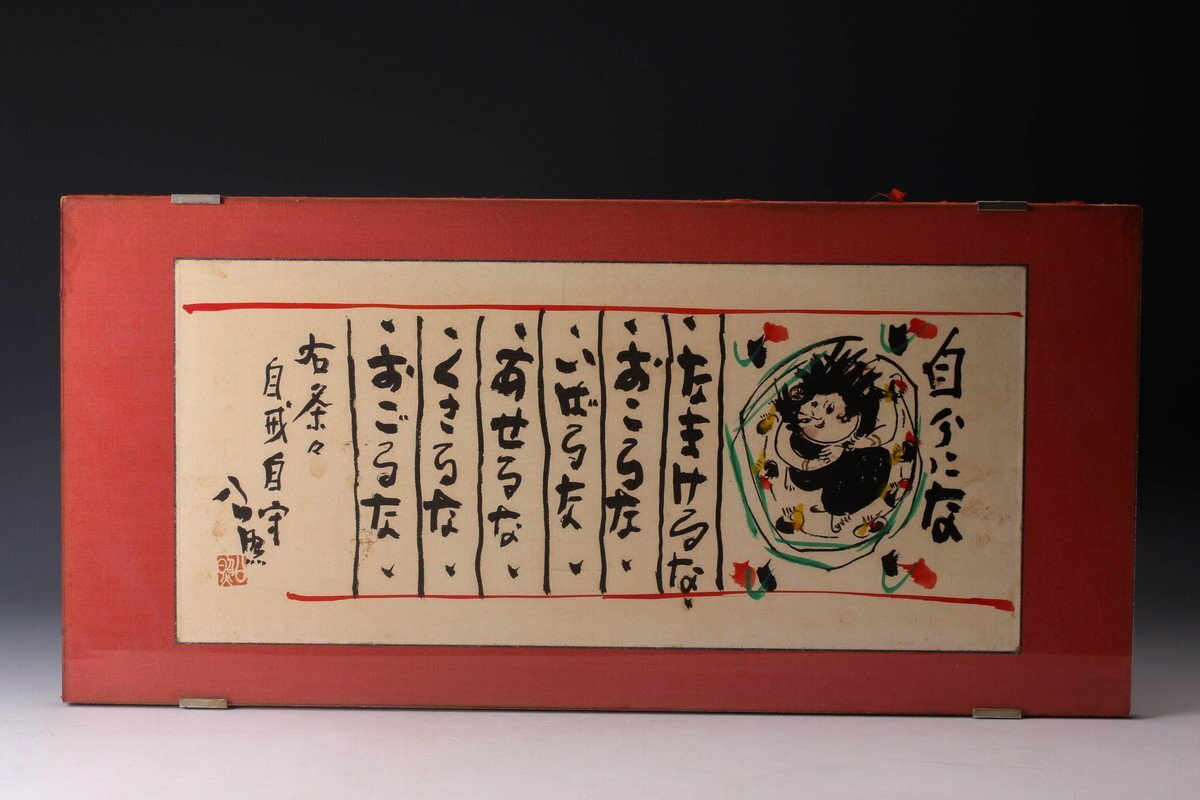 自分にな
・なまけるな・
・おこるな・
・いばるな・
・あせるな・
・くさるな・
・おごるな・
右条々
自戒自守
公照
公照